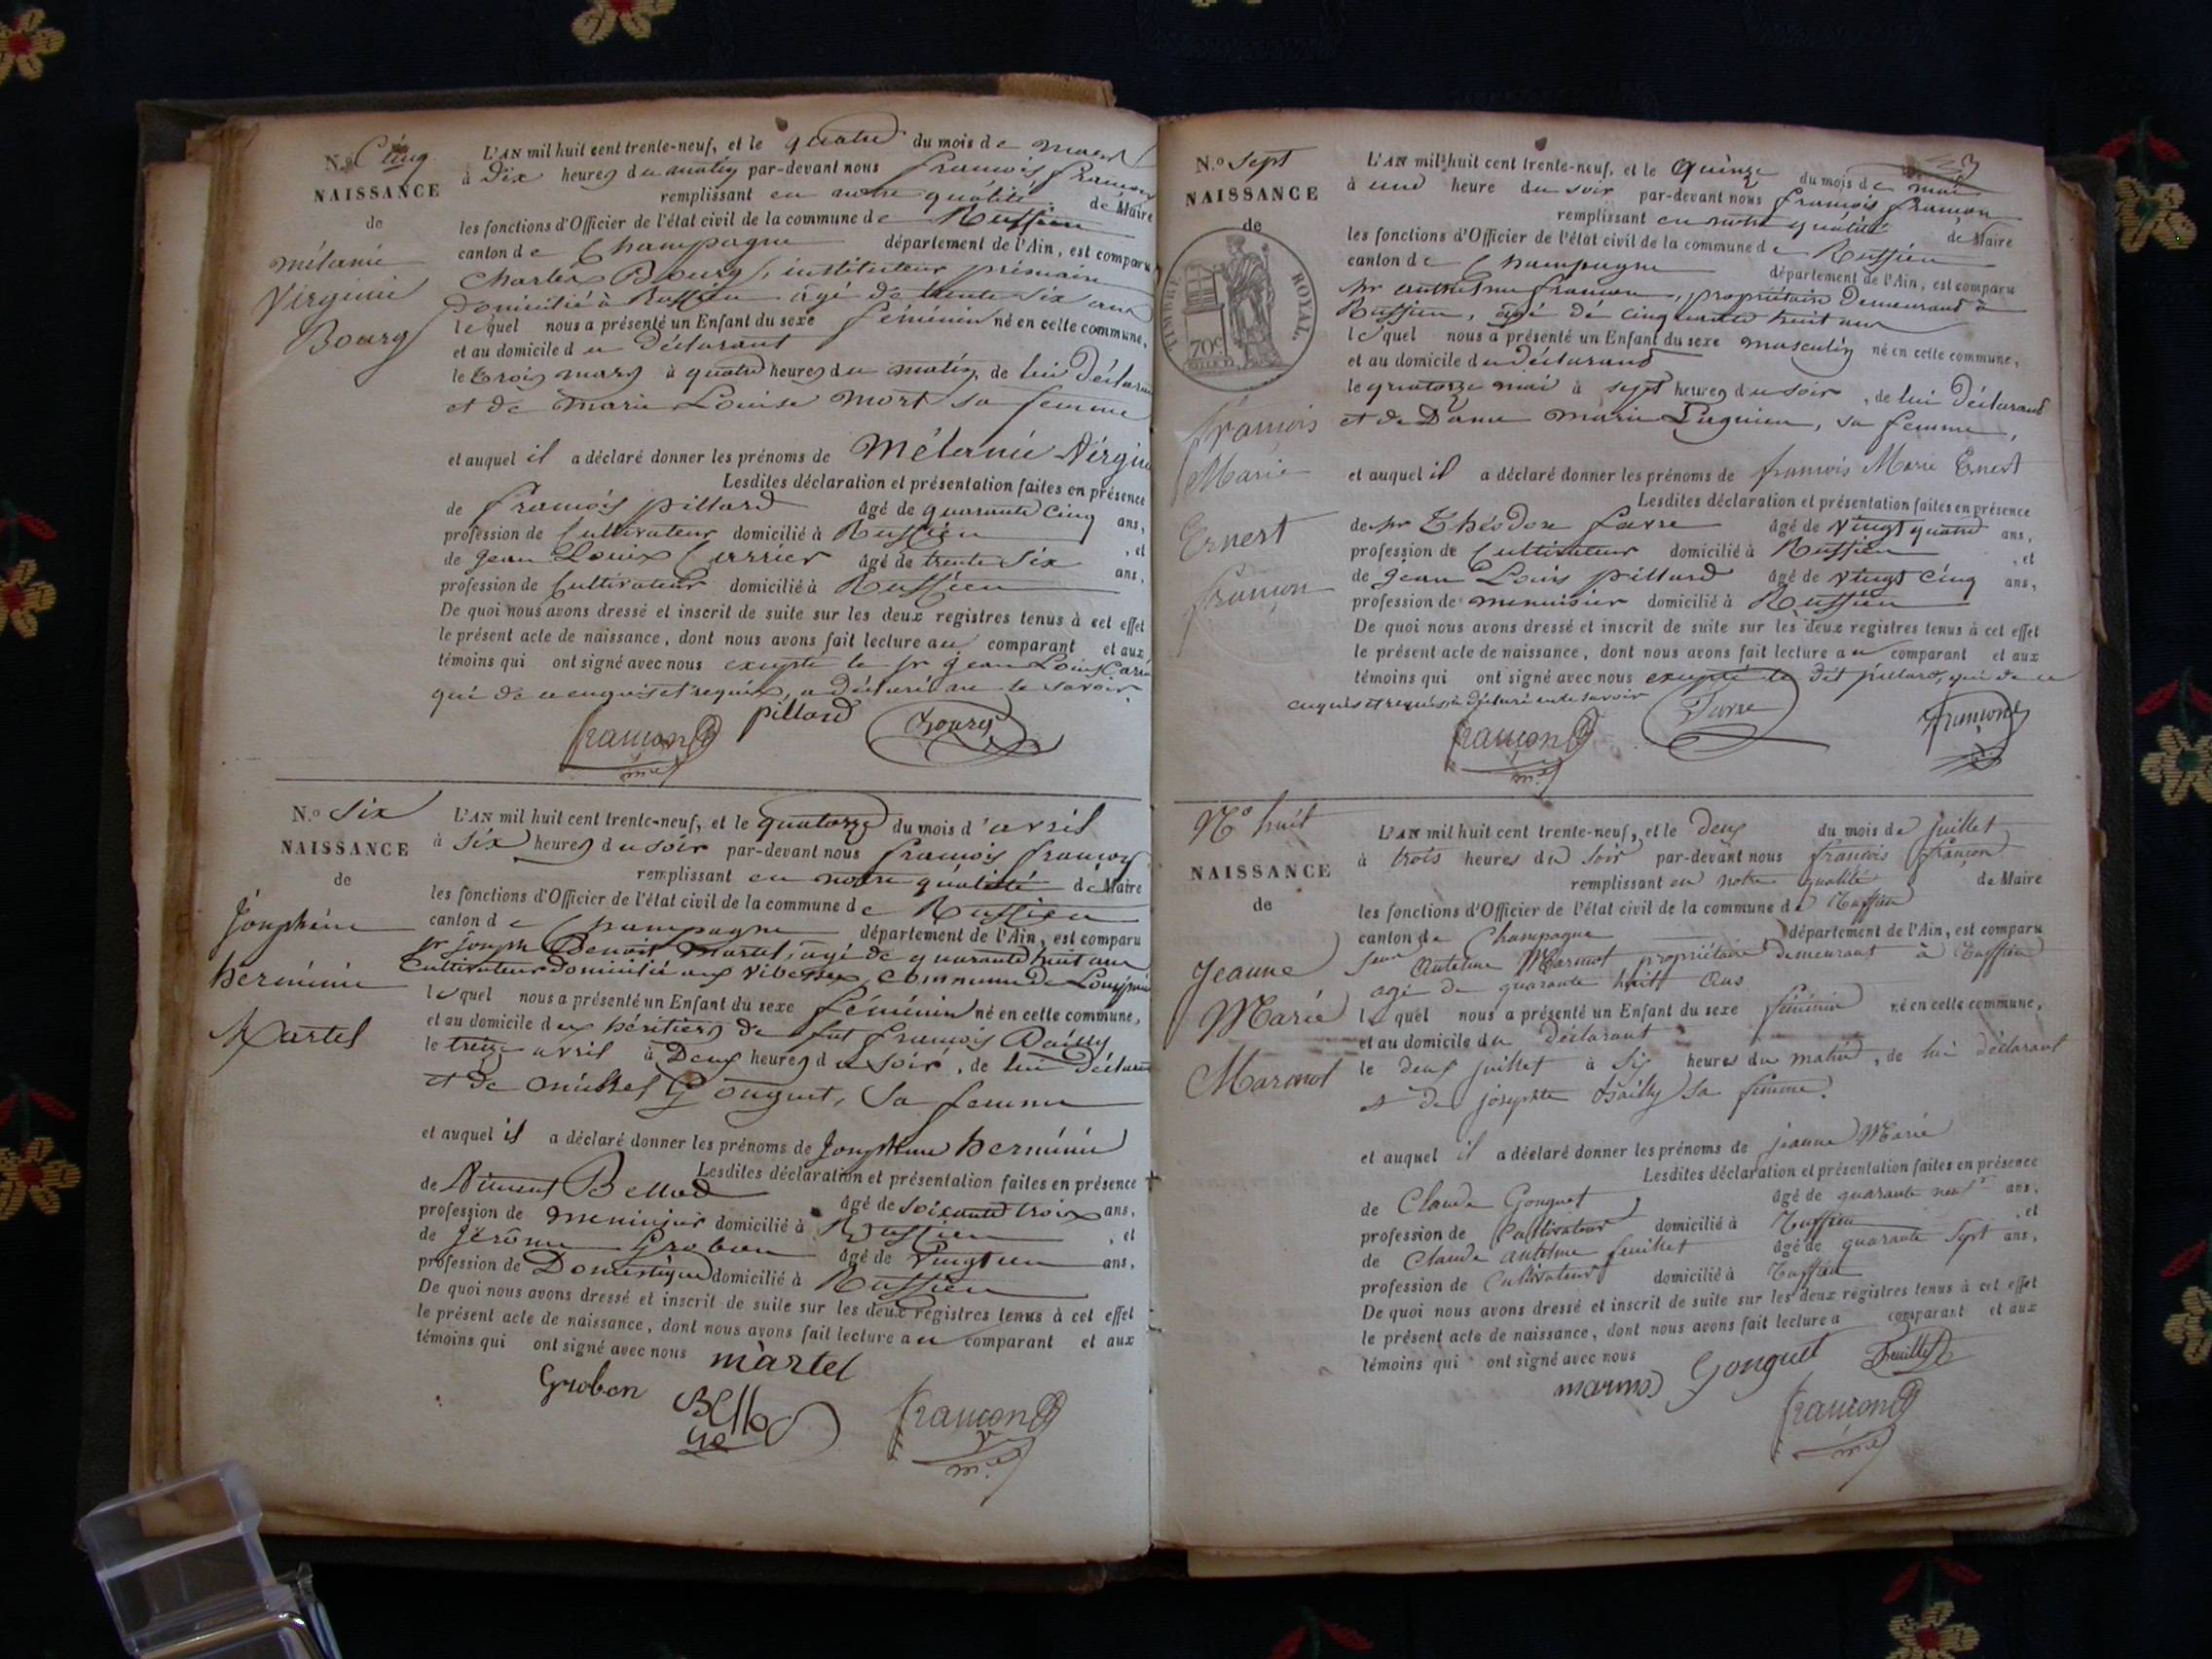 N.º Cinq
NAISSANCE
de
mélanie
Virginie
Bourg
L'AN mil huit cent trente-neuf, et le quatre du mois de mars
à Dix heures du matin par-devant nous françois françon
remplissant en notre qualité de Maire
les fonctions d'Officier de l'état civil de la commune de Ruffieu
canton de Champagne département de l'Ain, est comparu
Charles Bourg, instituteur primaire
Domicilié à Ruffieu âgé de trente six ans
lequel nous a présenté un Enfant du sexe féminin né en cette commune,
et au domicile du déclarant
le trois mars à quatre heures du matin, de lui Déclarant
et de marie Louise Mort sa femme
et auquel il a déclaré donner les prénoms de Mélanie Virginie
Lesdites déclaration et présentation faites en présence
de françois pillard âgé de quarante cinq ans,
profession de Cultivateur domicilié à Ruffieu , et
de Jean Louis Carrier âgé de trente six ans,
profession de Cultivateur domicilié à Ruffieu
De quoi nous avons dressé et inscrit de suite sur les deux registres tenus à cet effet
le présent acte de naissance, dont nous avons fait lecture au comparant et aux
témoins qui ont signé avec nous excepté le sr Jean Louis
qui de ce enquis et requis, a déclaré ne le savoir
françon pillard Bourg
N.º Six
NAISSANCE
de
Josephine
herminie
Martel
L'AN mil huit cent trente-neuf, et le quatorze du mois d'avril
à Six heures du soir par-devant nous françois françon
remplissant en notre qualité de Maire
les fonctions d'Officier de l'état civil de la commune de Ruffieu
canton de Champagne département de l'Ain, est comparu
sr Joseph Benoit Martel, âgé de quarante huit ans
Cultivateur domicilié aux commune de
lequel nous a présenté un Enfant du sexe féminin né en cette commune,
et au domicile des héritiers de fut françois Bailly
le treize avril à Deux heures du soir, de lui déclarant
et de Gonguet, Sa femme
et auquel il a déclaré donner les prénoms de Josephine herminie
Lesdites déclaration et présentation faites en présence
de Vincent Bellod âgé de soixante trois ans,
profession de menuisier domicilié à Ruffieu , et
de Jérôme Grobon âgé de vingt un ans,
profession de Domestique domicilié à Ruffieu
De quoi nous avons dressé et inscrit de suite sur les deux registres tenus à cet effet
le présent acte de naissance, dont nous avons fait lecture au comparant et aux
témoins qui ont signé avec nous martel
Grobon françon
N.º Sept
NAISSANCE
de
TIMBRE ROYAL.
70c
françois
Marie
Ernest
françon
L'AN mil huit cent trente-neuf, et le Quinze du mois de mai
à une heure du soir par-devant nous françois françon
remplissant en notre qualité de Maire
les fonctions d'Officier de l'état civil de la commune de Ruffieu
canton de Champagne département de l'Ain, est comparu
sr anthelme françon, propriétaire Demeurand à
Ruffieu, âgé de cinquante huit ans
lequel nous a présenté un Enfant du sexe masculin né en cette commune,
et au domicile du déclarand
le quatorze mai à sept heures du soir, de lui Déclarand
et de Dame marie Luguien, sa femme,
et auquel il a déclaré donner les prénoms de françois Marie Ernest
Lesdites déclaration et présentation faites en présence
de sr Théodore favre âgé de vingt quatre ans,
profession de Cultivateur domicilié à Ruffieu , et
de Jean Louis pillard âgé de vingt cinq ans,
profession de menuisier domicilié à Ruffieu
De quoi nous avons dressé et inscrit de suite sur les deux registres tenus à cet effet
le présent acte de naissance, dont nous avons fait lecture au comparant et aux
témoins qui ont signé avec nous excepté le dit pillard, qui de ce
enquis et requis, a déclaré ne le savoir
françon Favre françon
Nº huit
NAISSANCE
de
Jeanne
Marie
Marmot
L'AN mil huit cent trente-neuf, et le deux du mois de juillet
à trois heures du soir par-devant nous françois françon
remplissant en notre qualité de Maire
les fonctions d'Officier de l'état civil de la commune de Ruffieu
canton de Champagne département de l'Ain, est comparu
sieur Antelme Marmot propriétaire demeurant à Ruffieu
agé de quarante huit ans
lequel nous a présenté un Enfant du sexe féminin né en cette commune,
et au domicile du déclarant
le deux juillet à six heures du matin, de lui déclarant
et de josephte Bailly sa femme.
et auquel il a déclaré donner les prénoms de jeanne Marie
Lesdites déclaration et présentation faites en présence
de Claude Gonguet âgé de quarante neuf ans,
profession de Cultivateur domicilié à Ruffieu , et
de Claude antelme feuillet âgé de quarante sept ans,
profession de Cultivateur domicilié à Ruffieu
De quoi nous avons dressé et inscrit de suite sur les deux registres tenus à cet effet
le présent acte de naissance, dont nous avons fait lecture a comparant et aux
témoins qui ont signé avec nous
marmot Gonguet feuillet
françon